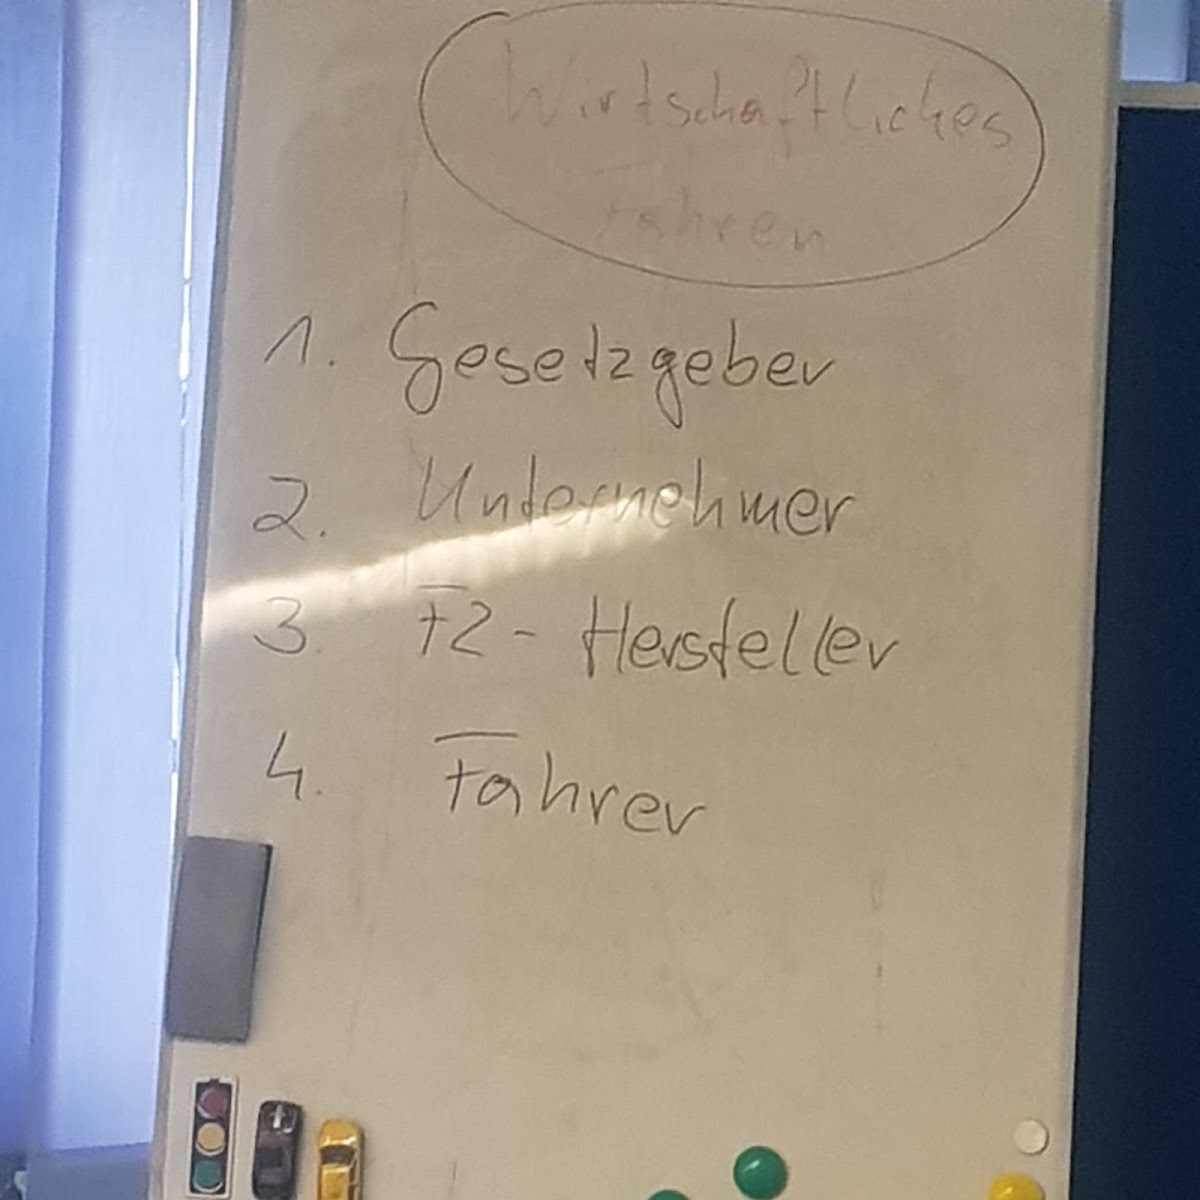 Wirtschaftliches
Fahren
1. Gesetzgeber
2. Unternehmer
3. FZ - Hersteller
4. Fahrer